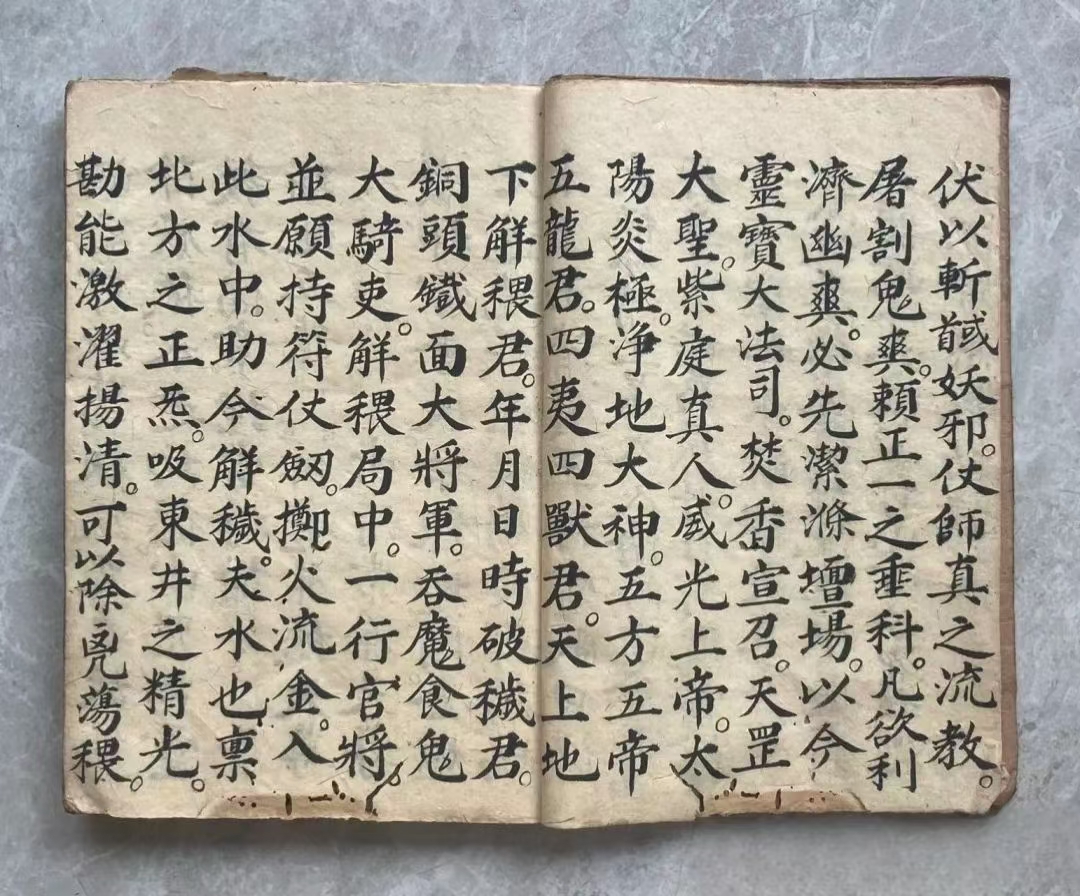 伏以斬馘妖邪。仗師真之流教。
屠割鬼爽。賴正一之垂科。凡欲利
濟幽爽。必先潔滌壇場。以今
靈寶大法司。焚香宣召。天罡
大聖。紫庭真人。威光上帝。太
陽炎極。净地大神。五方五帝
五龍君。四夷四獸君。天上地
下解穢君。年月日時破穢君。
銅頭鐵面大將軍。吞魔食鬼
大騎吏。解穢局中。一行官將。
並願持符仗劒。擲火流金。入
此水中。助今解穢。夫水也禀
北方之正炁。吸東井之精光。
勘能激濯揚清。可以除兇蕩穢。